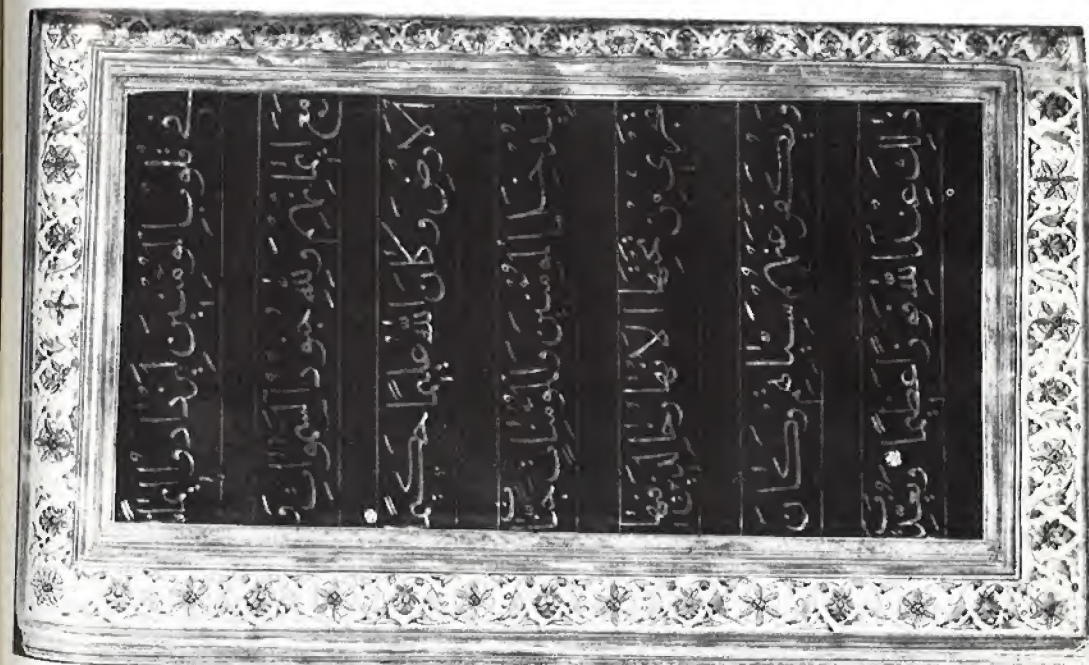 في قلوب المؤمنين ليزدادوا ايمانًا
مع ايمانهم ولله جنود السموات و
الارض وكان الله عليمًا حكيمًا
ليدخل المؤمنين والمؤمنات جنات
تجري من تحتها الانهار خالدين فيها
ويكفر عنهم سياتهم وكان
ذلك عند الله فوزًا عظيمًا ويعذب